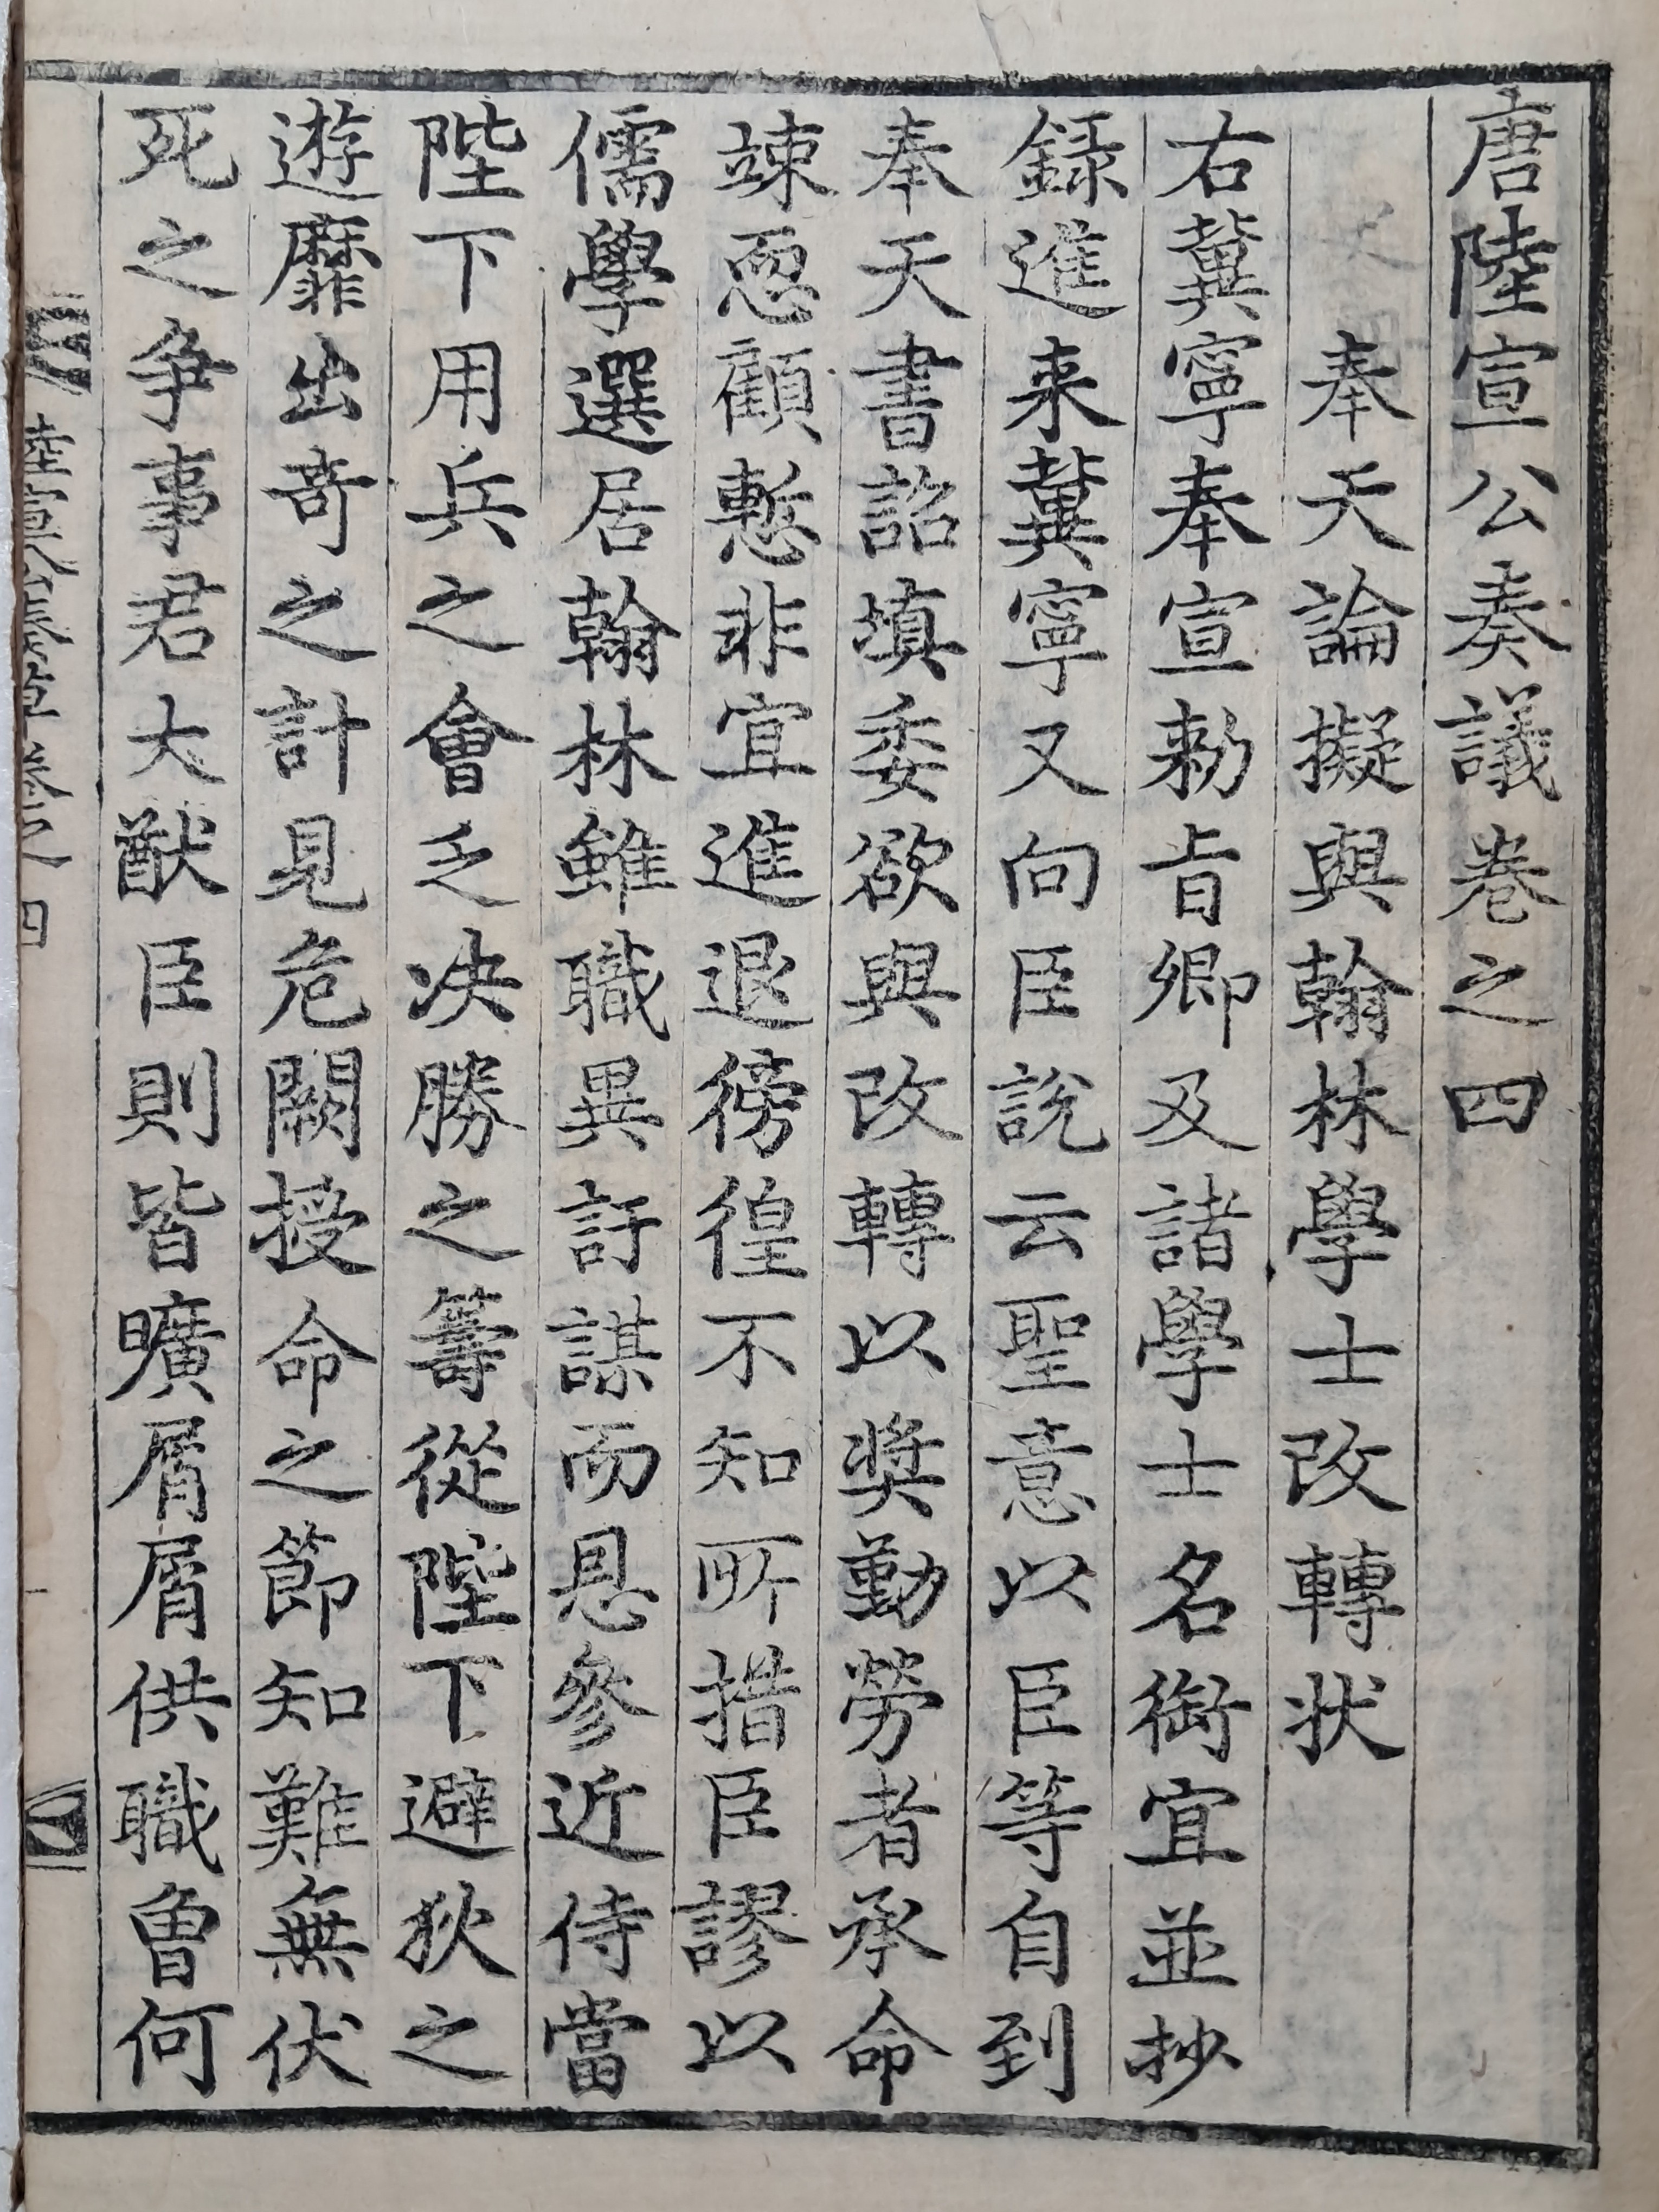 唐陸宣公奏議卷之四
奉天論擬與翰林學士改轉狀
右冀寧奉宣勑旨卿及諸學士名銜宜並抄
錄進来冀寧又向臣說云聖意以臣等自到
奉天書詔填委欲與改轉以奨勤勞者承命
竦恧顧慙非宜進退徬徨不知所措臣謬以
儒學選居翰林雖職異訏謀而恩參近侍當
陛下用兵之會乏决勝之籌從陛下避狄之
遊靡出奇之計見危闕授命之節知難無伏
死之争事君大猷臣則皆曠屑屑供職曽何
陸宣公奏議卷之四